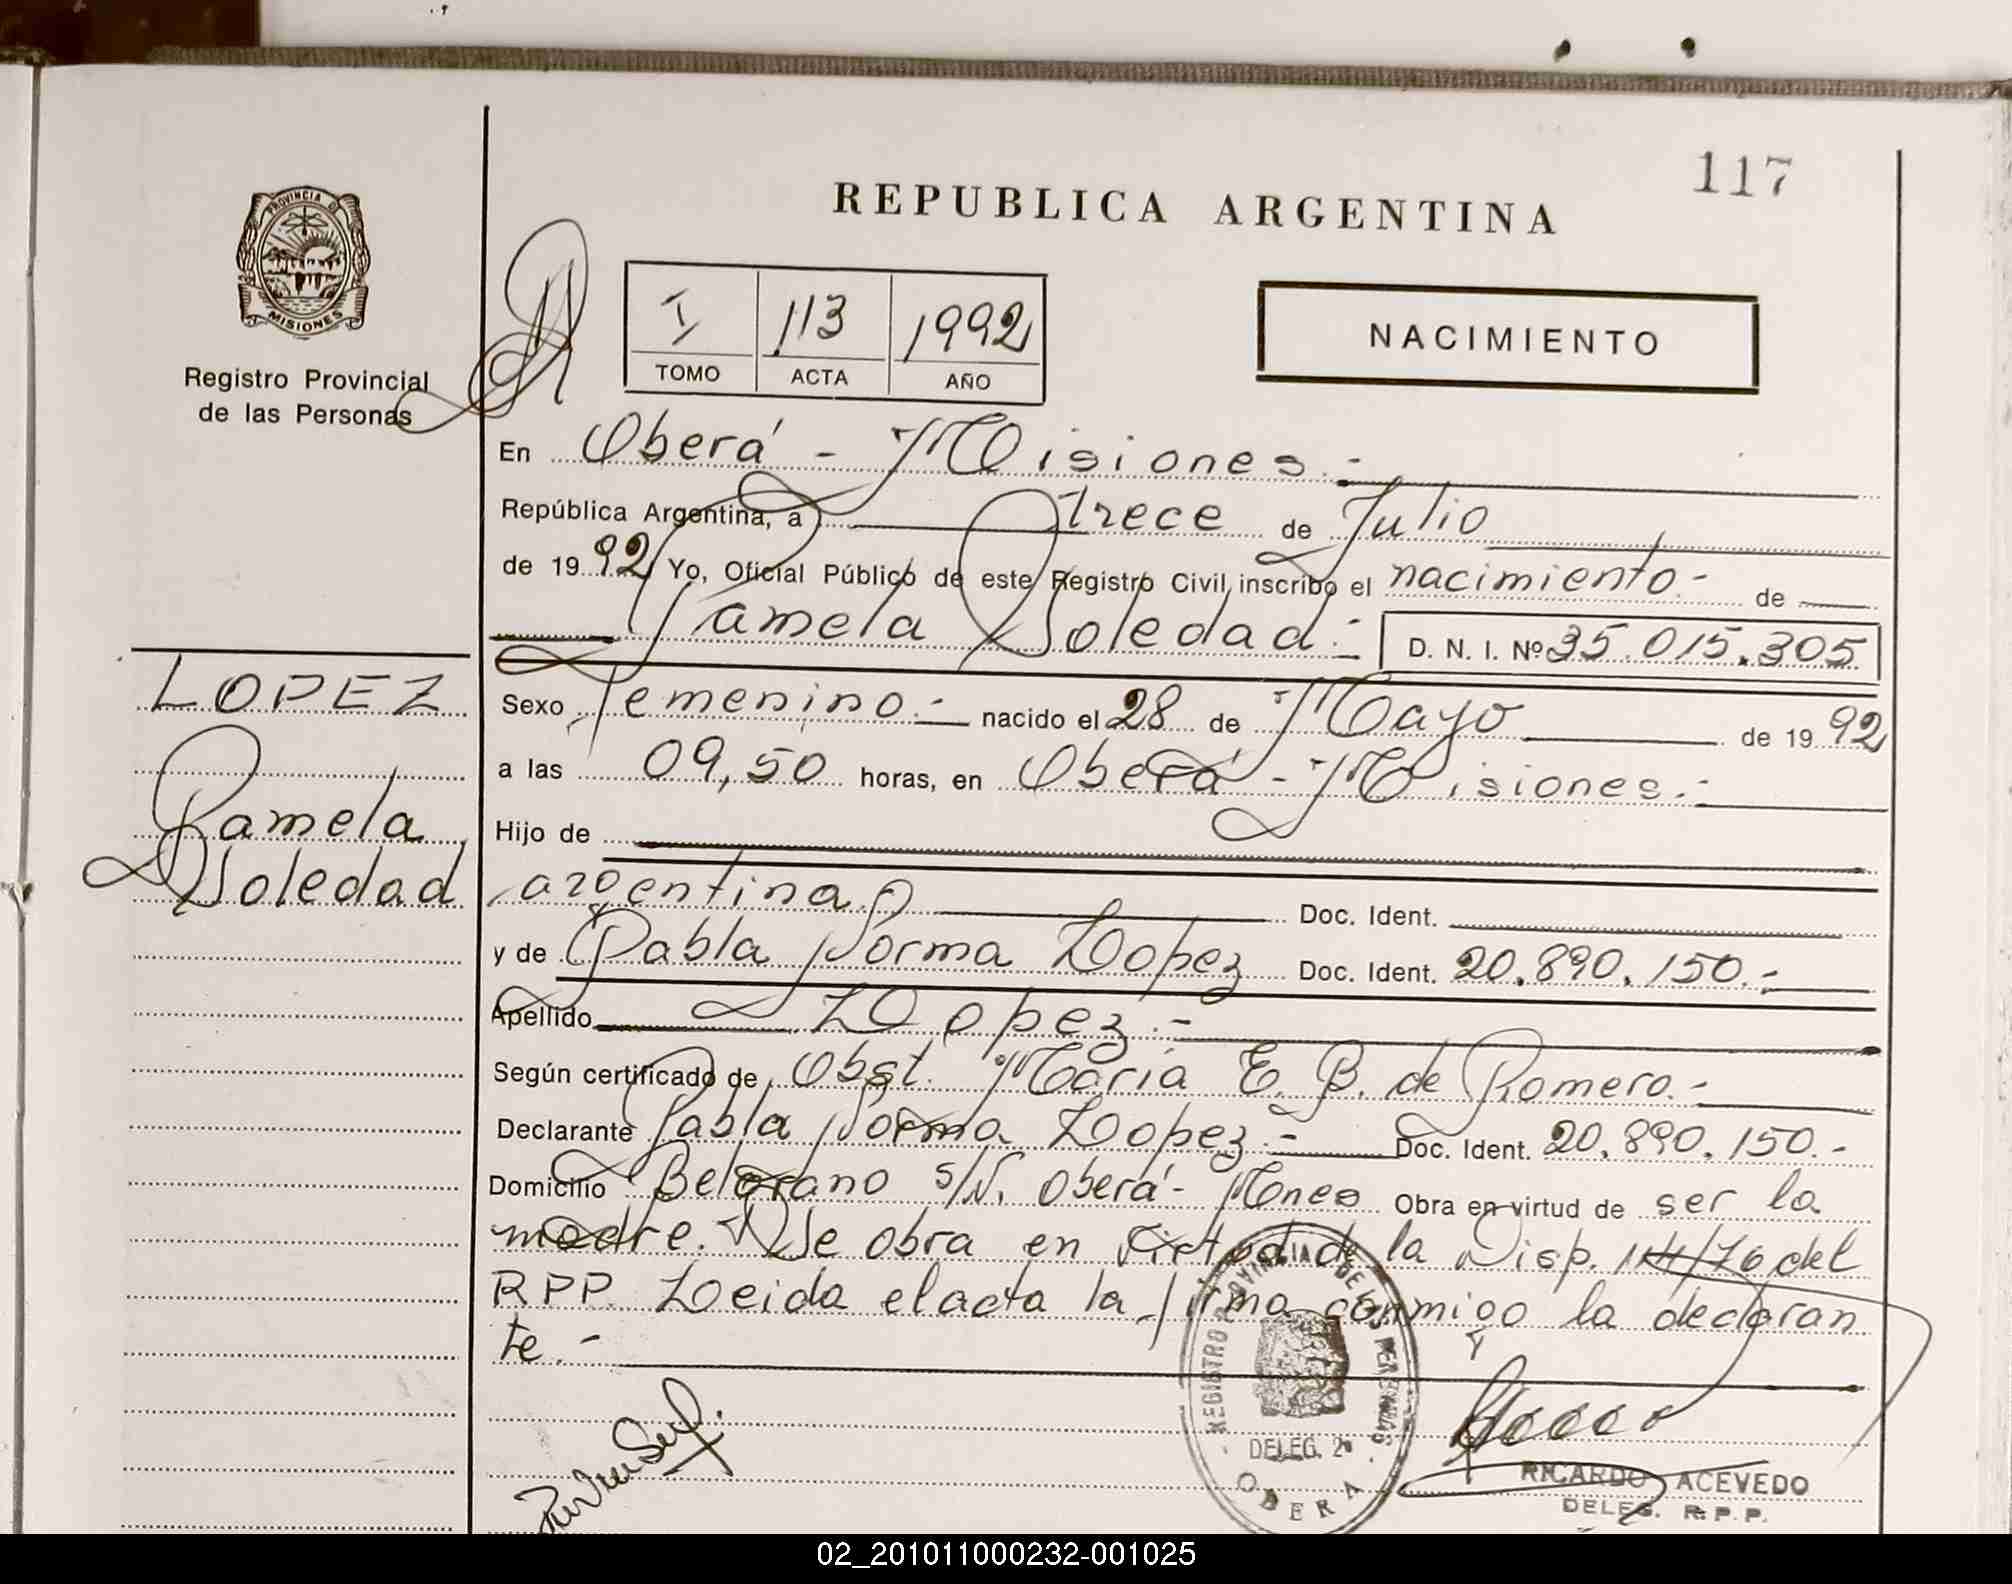 117
REPUBLICA ARGENTINA
PROVINCIA D
MISIONES
Registro Provincial
de las Personas
I 113 1992
TOMO ACTA AÑO
NACIMIENTO
En Oberá - Misiones.-
República Argentina, a trece de Julio
de 1992 Yo, Oficial Público de este Registro Civil, inscribo el nacimiento.- de
Pamela Soledad.- D. N. I. Nº 35.015.305
LOPEZ
Pamela
Soledad
Sexo femenino.- nacido el 28 de Mayo de 1992
a las 09,50 horas, en Oberá - Misiones.-
Hijo de
argentina. Doc. Ident.
y de Pabla Norma Lopez Doc. Ident. 20.890.150.-
Apellido Lopez.-
Según certificado de Obst. Maria E. B. de Romero.-
Declarante Pabla Norma Lopez.- Doc. Ident. 20.890.150.-
Domicilio Belgrano s/N. Oberá- Mnes Obra en virtud de ser la
madre. Se obra en virtud de la Disp. del
RPP. Leida el acta la firma conmigo la declaran
te.-
REGISTRO PROVINCIAL DE LAS PERSONAS
DELEG. 2a
OBERA
RICARDO ACEVEDO
DELEG. R.P.P.
02_201011000232-001025